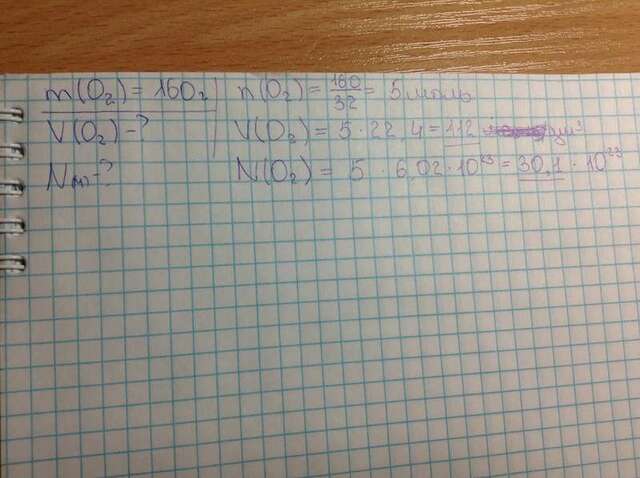 m(O₂) = 160г n(O₂) = 160/32 = 5 моль
V(O₂) - ? V(O₂) = 5 · 22,4 = 112 дм³
N - ? N(O₂) = 5 · 6,02 · 10²³ = 30,1 · 10²³